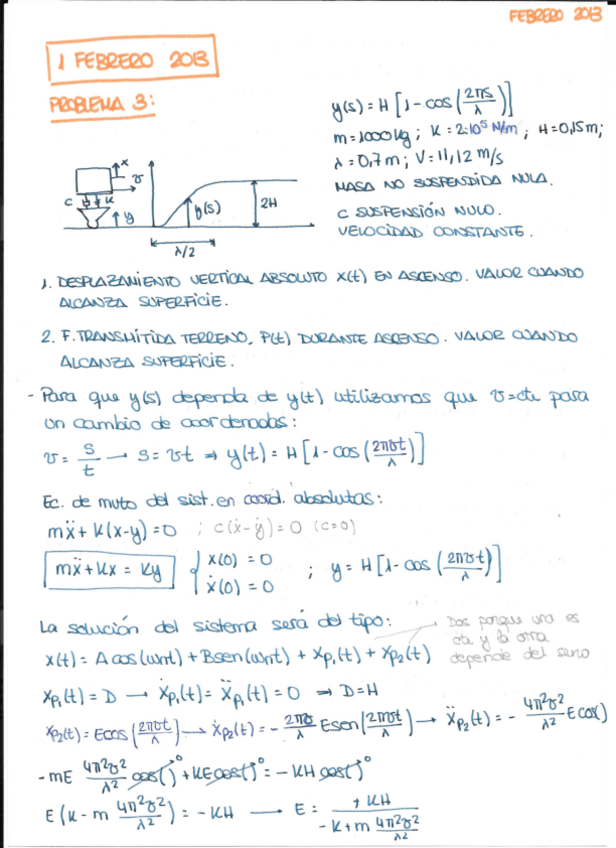 FEBRERO 2013
1 FEBRERO 2013
PROBLEMA 3:
y(s) = H [1 - cos(2πs/λ)]
m = 1000 kg ; K = 2·10⁵ N/m ; H = 0,15m ;
λ = 0,7 m ; V = 11,12 m/s
MASA NO SUSPENDIDA NULA.
C SUSPENSIÓN NULO.
VELOCIDAD CONSTANTE.
x
v
C
K
y
y(s)
2H
λ/2
1. DESPLAZAMIENTO VERTICAL ABSOLUTO X(t) EN ASCENSO. VALOR CUANDO
ALCANZA SUPERFICIE.
2. F. TRANSMITIDA TERRENO, P(t) DURANTE ASCENSO. VALOR CUANDO
ALCANZA SUPERFICIE.
- Para que y(s) dependa de y(t) utilizamos que v=cte para
un cambio de coordenadas:
v = s/t → s = vt ⇒ y(t) = H [1 - cos(2πvt/λ)]
Ec. de mvto del sist. en coord. absolutas:
mẍ + K(x-y) = 0 ; c(ẋ-ẏ) = 0 (c=0)
mẍ + Kx = Ky { x(0) = 0 ẋ(0) = 0 ; y = H [1 - cos(2πvt/λ)]
La solución del sistema será del tipo:
Dos porque una es
cte y la otra
depende del seno
x(t) = A cos(wnt) + B sen(wnt) + Xp₁(t) + Xp₂(t)
Xp₁(t) = D → Ẋp₁(t) = Ẍp₁(t) = 0 ⇒ D=H
Xp₂(t) = E cos(2πvt/λ) → Ẋp₂(t) = - 2πv/λ E sen(2πvt/λ) → Ẍp₂(t) = - 4π²v²/λ² E cos( )
- mE 4π²v²/λ² cos( )⁰ + KE cos( )⁰ = - KH cos( )⁰
E (K - m 4π²v²/λ²) = - KH → E = + KH / (- K + m 4π²v²/λ²)